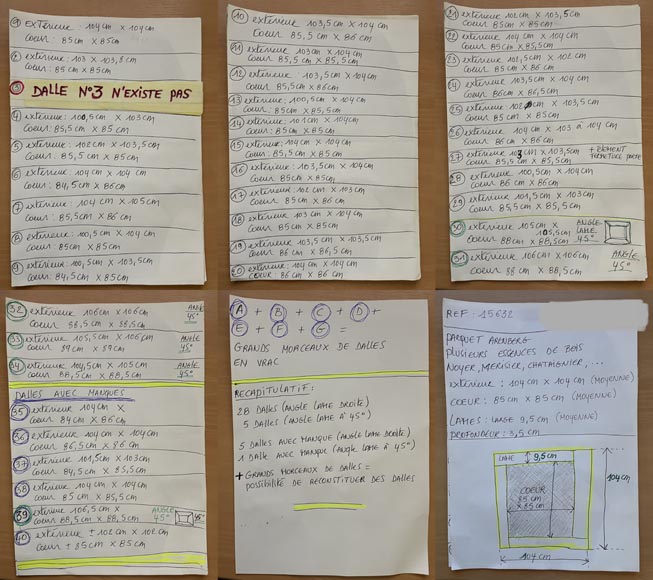 ① extérieur: 104 cm x 104 cm
Coeur: 85 cm x 85 cm
② extérieur: 103 x 103,8 cm
Coeur: 85 cm x 85 cm
③ DALLE N°3 N'EXISTE PAS
④ extérieur: 100,5 cm x 103 cm
Coeur: 85,5 cm x 85 cm
⑤ extérieur: 102 cm x 103,5 cm
Coeur: 85,5 cm x 85 cm
⑥ extérieur: 104 cm x 104 cm
Coeur: 84,5 cm x 86 cm
⑦ extérieur: 104 cm x 105 cm
Coeur: 85,5 cm x 86 cm
⑧ extérieur: 100,5 cm x 104 cm
Coeur: 85 cm x 85 cm
⑨ extérieur: 100,5 cm x 103,5 cm
Coeur: 84,5 cm x 85 cm
⑩ extérieur: 103,5 cm x 104 cm
Coeur: 85,5 cm x 86 cm
⑪ extérieur: 103 cm x 104 cm
Coeur: 85,5 cm x 85,5 cm
⑫ extérieur: 103,5 cm x 104 cm
Coeur: 85 cm x 86 cm
⑬ extérieur: 100,5 cm x 104 cm
Coeur: 85 cm x 85 cm
⑭ extérieur: 101 cm x 104 cm
Coeur: 85 cm x 86 cm
⑮ extérieur: 103 cm x 104 cm
Coeur: 85,5 cm x 86 cm
⑯ extérieur: 103,5 cm x 104 cm
Coeur: 85 cm x 85 cm
⑰ extérieur: 102 cm x 103 cm
Coeur: 85 cm x 86 cm
⑱ extérieur: 103 cm x 104 cm
Coeur: 85 cm x 85 cm
⑲ extérieur: 103,5 cm x 103,5 cm
Coeur: 86 cm x 86 cm
⑳ extérieur: 104 cm x 104 cm
Coeur: 86 cm x 86 cm
㉑ extérieur 102 cm x 103,5 cm
Coeur 85 cm x 85 cm
㉒ extérieur 104 cm x 104 cm
Coeur 85 cm x 85,5 cm
㉓ extérieur 102,5 cm x 102 cm
Coeur 85 cm x 86 cm
㉔ extérieur 103,5 cm x 104 cm
Coeur 86 cm x 86 cm
㉕ extérieur 102 cm x 103,5 cm
Coeur 85 cm x 85 cm
㉖ extérieur 104 cm x 103 à 104 cm
Coeur 86 cm x 85,5 cm
㉗ extérieur 103 cm x 103,5 cm + ÉLÉMENT
Coeur 85,5 cm x 85,5 cm FERMETURE PORTE
㉘ extérieur 100,5 cm x 104 cm
Coeur 86 cm x 86 cm
㉙ extérieur 101,5 cm x 103 cm
Coeur 85,5 cm x 85,5 cm
㉚ extérieur 105 cm x 105,5 cm ANGLE LAME 45°
Coeur 88 cm x 88,5 cm
㉛ extérieur 106 cm x 106 cm ANGLE
Coeur 88 cm x 88,5 cm 45°
㉜ extérieur 106 cm x 106 cm ANGLE
Coeur 88,5 cm x 88,5 cm 45°
㉝ extérieur 105,5 cm x 106 cm ANGLE
Coeur 89 cm x 89 cm 45°
㉞ extérieur 104,5 cm x 105 cm ANGLE
Coeur 88,5 cm x 88,5 cm 45°
DALLES AVEC MANQUES
㉟ extérieur 104 cm x
Coeur 84 cm x 86 cm
㊱ extérieur 104 cm x 104 cm
Coeur 86,5 cm x 86 cm
㊲ extérieur 101,5 cm x 103 cm
Coeur 84,5 cm x 85,5 cm
㊳ extérieur 104 cm x 104 cm
Coeur 85 cm x 85,5 cm
㊴ extérieur 106,5 cm x ANGLE 45°
Coeur 88,5 cm x 88,5 cm 45°
㊵ extérieur ± 102 cm x 102 cm
Coeur ± 85 cm x 85 cm
A + B + C + D +
E + F + G =
GRANDS MORCEAUX DE DALLES
EN VRAC
RECAPITULATIF:
28 DALLES (ANGLE LAME DROITE)
5 DALLES (ANGLE LAME À 45°)
5 DALLES AVEC MANQUE (ANGLE LAME DROITE)
1 DALLE AVEC MANQUE (ANGLE LAME À 45°)
+ GRANDS MORCEAUX DE DALLES =
POSSIBILITÉ DE RECONSTITUER DES DALLES
REF: 15632
PARQUET ARENBERG
PLUSIEURS ESSENCES DE BOIS
NOYER, MERISIER, CHATAIGNIER, ...
EXTÉRIEUR: 104 cm x 104 cm (MOYENNE)
COEUR: 85 cm x 85 cm (MOYENNE)
LAMES: LARGE 9,5 cm (MOYENNE)
PROFONDEUR: 3,5 cm
LAME 9,5 cm
COEUR
85 cm
x 85 cm
104 cm
104 cm